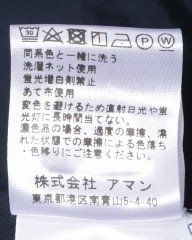 30 P W
同系色と一緒に洗う
洗濯ネット使用
蛍光増白剤禁止
あて布使用
変色を避けるため直射日光や蛍
光灯に長時間当てない。
濃色品の場合、過度の摩擦、濡
れた状態での摩擦による色落ち
・色移りにご注意ください。
株式会社 アマン
東京都港区南青山5-4-40